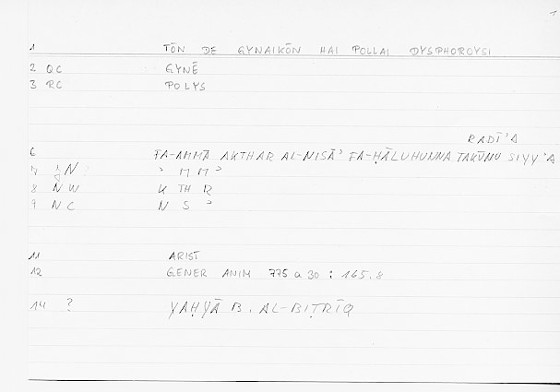 1
1 TŌN DE GYNAIKŌN HAI POLLAI DYSPHOROYSI
2 QC GYNĒ
3 RC POLYS
RADĪ'A
6 FA-AMMĀ AKTHAR AL-NISĀ' FA-ḤĀLUHUNNA TAKŪNU SIYY'A
7 JN ' M M '
8 NW K TH R
9 NC N S '
11 ARIST
12 GENER ANIM 775 a 30 : 165.8
14 ? YAḤYĀ B. AL-BIṬRĪQ